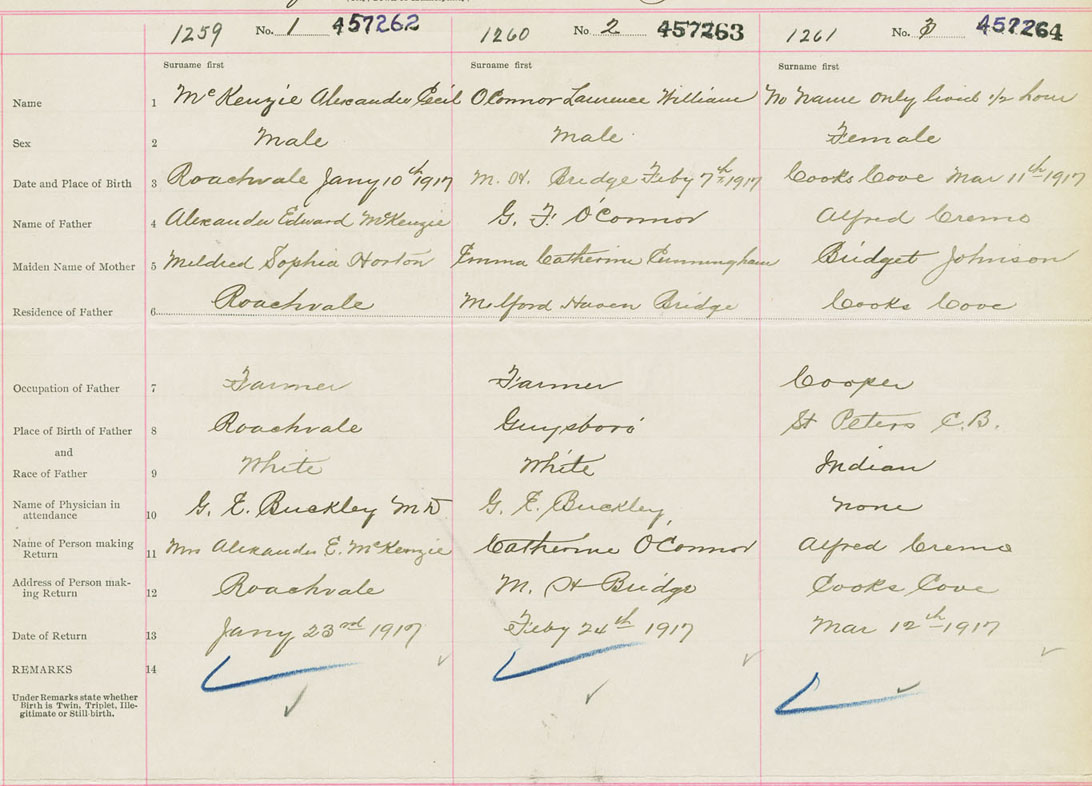 1259 No. 1 457262 1260 No. 2 457263 1261 No. 3 457264
Surname first Surname first Surname first
Name 1 McKenzie Alexander Cecil OConnor Laurence William No Name only lived 1/2 hour
Sex 2 Male Male Female
Date and Place of Birth 3 Roachvale Jany 10th 1917 M. H. Bridge Feby 7th 1917 Cooks Cove Mar 11th 1917
Name of Father 4 Alexander Edward McKenzie G. F. O'Connor Alfred Cremo
Maiden Name of Mother 5 Mildred Sophia Horton Emma Catherine Cunningham Bridget Johnson
Residence of Father 6 Roachvale Milford Haven Bridge Cooks Cove
Occupation of Father 7 Farmer Farmer Cooper
Place of Birth of Father 8 Roachvale Guysboro St Peters C.B.
and
Race of Father 9 White White Indian
Name of Physician in attendance 10 G. E. Buckley MD G. E. Buckley None
Name of Person making Return 11 Mrs Alexander E. McKenzie Catherine O'Connor Alfred Cremo
Address of Person mak-ing Return 12 Roachvale M. H Bridge Cooks Cove
Date of Return 13 Jany 23rd 1917 Feby 24th 1917 Mar 12th 1917
REMARKS 14
Under Remarks state whether
Birth is Twin, Triplet, Ille-
gitimate or Still-birth.